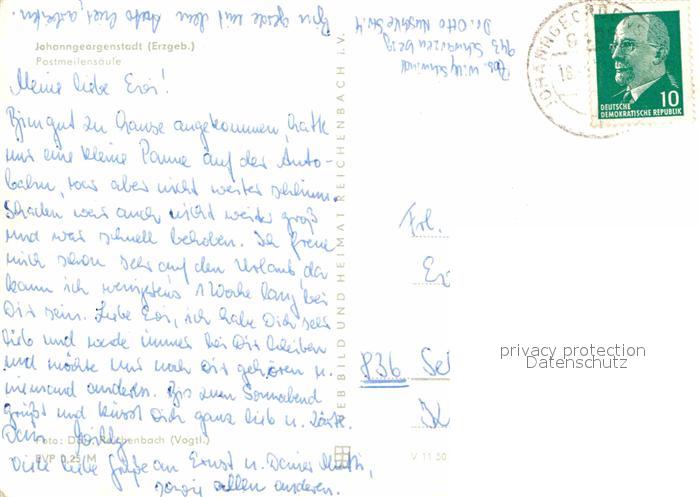 Johanngeorgenstadt (Erzgeb.)
Postmeilensäule
Meine liebe Evi!
Bin gut zu Hause angekommen, hatte
nur eine kleine Panne auf der Auto-
bahn, war aber nicht weiter schlimm.
Schaden war auch nicht weiter groß
und war schnell behoben. Ich freue
mich schon sehr auf den Urlaub, da
kann ich wenigstens 1 Woche lang bei
Dir sein. Liebe Evi, ich habe Dich sehr
lieb und werde immer bei Dir bleiben
und möchte nur noch Dir gehören u.
niemand anderen. Bis zum Sonnabend
grüßt und küsst Dich ganz lieb u.
Dein Willy
Viele liebe Grüße an Ernst u. Deiner Mutti,
sowie allen anderen.
Foto: Dick, Reichenbach (Vogtl.)
EVP 0,25 M
VEB BILD UND HEIMAT REICHENBACH I.V.
V 11 50
Bin gerade mit dem Auto hier, arbeiten.
Abs. Willy Schwind
943 Schwarzenberg
Dr. Otto Nuschke Str. 4
JOHANNGEORGE
18
10
DEUTSCHE
DEMOKRATISCHE REPUBLIK
Frl.
836
privacy protection
Datenschutz